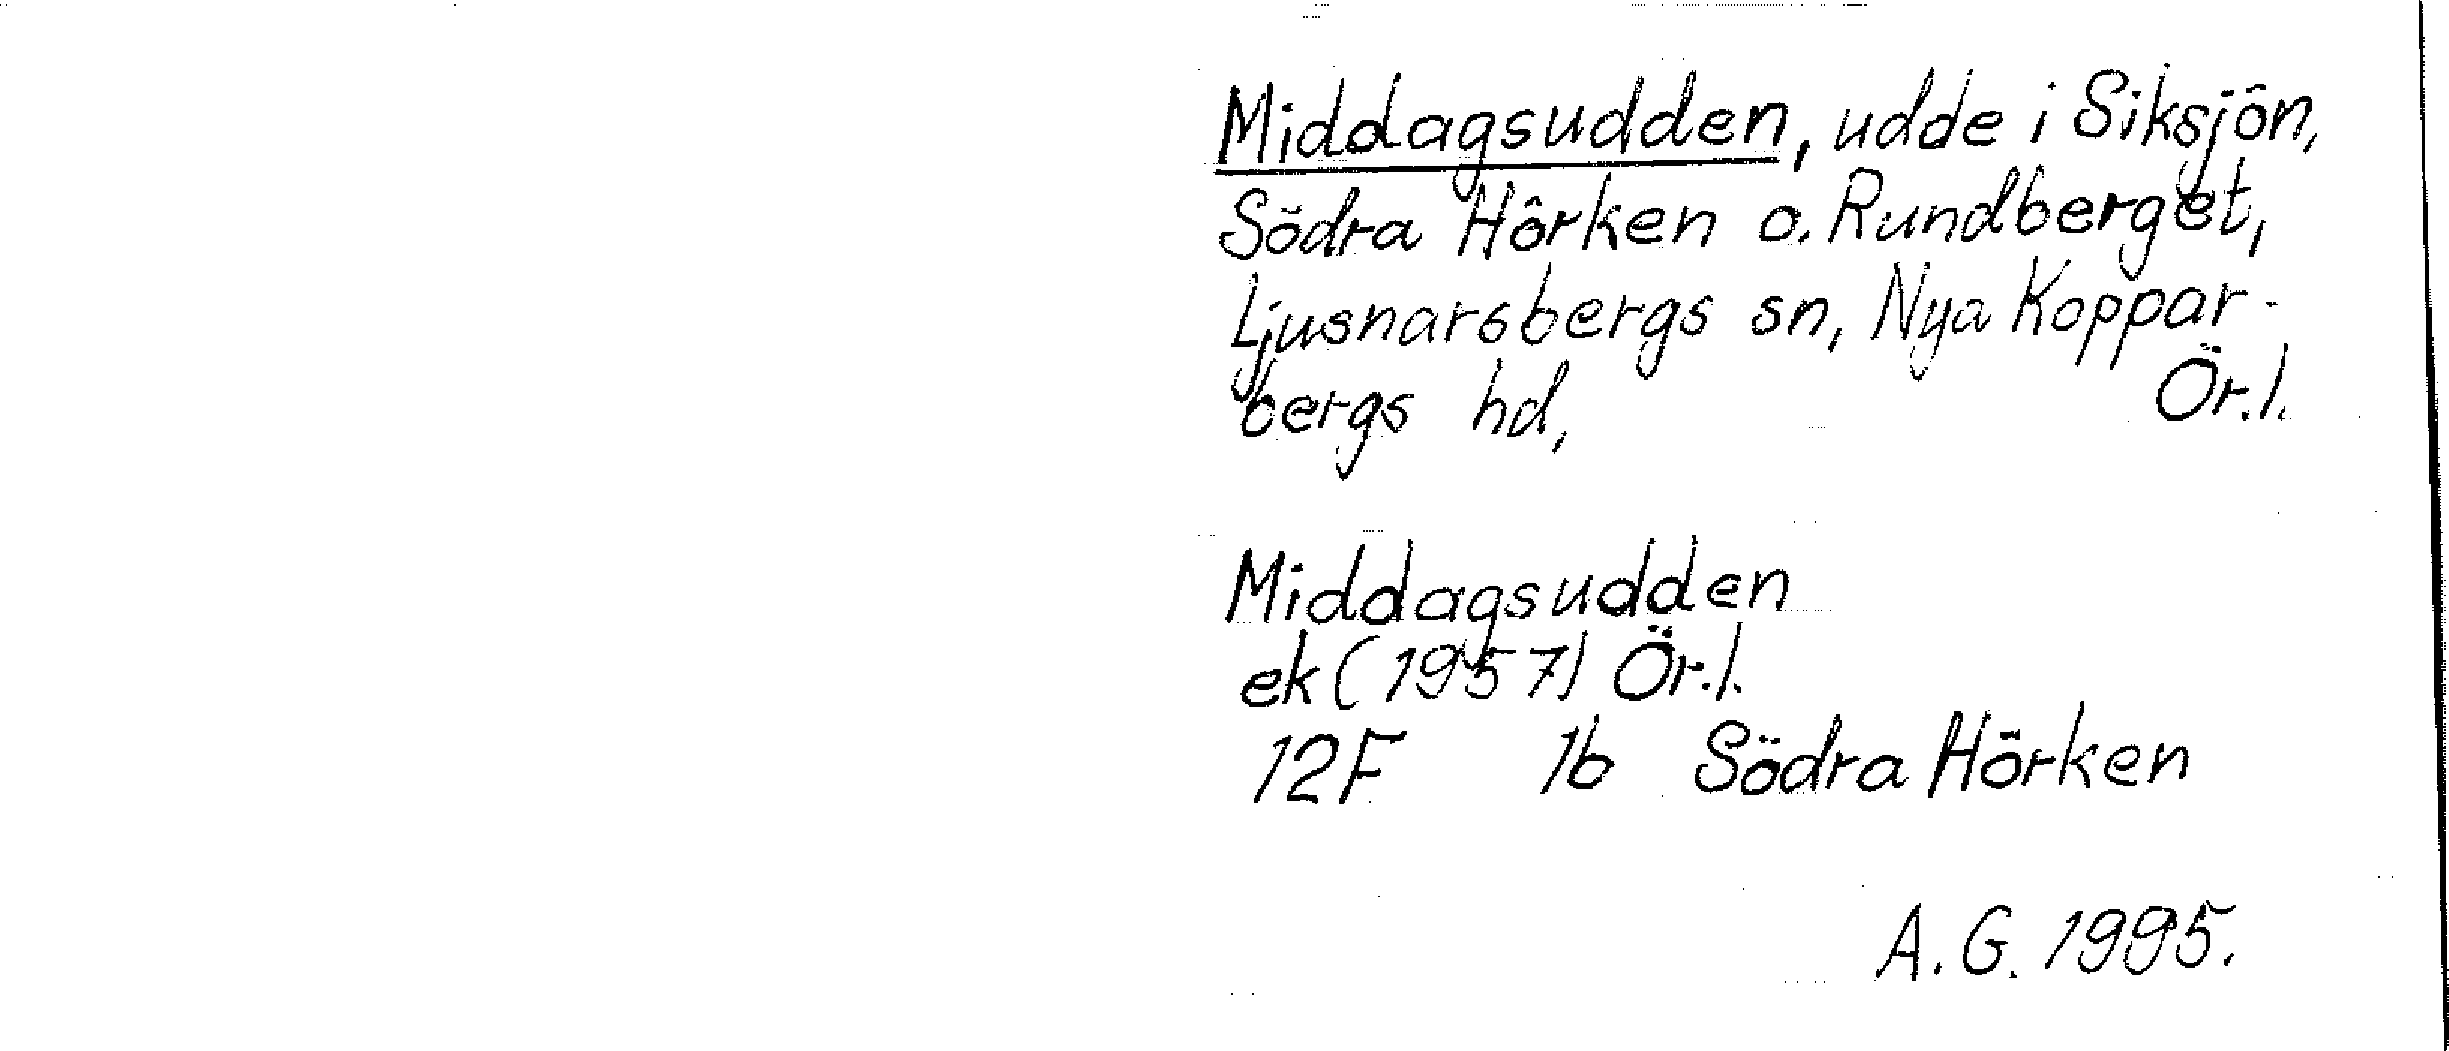 Middagsudden, udde i Siksjön,
Södra Hörken o. Rundberget,
Ljusnarsbergs sn, Nya Koppar-
bergs hd, Ör.l.
Middagsudden
ek (1957) Ör.l.
12F 1b Södra Hörken
A.G. 1995.